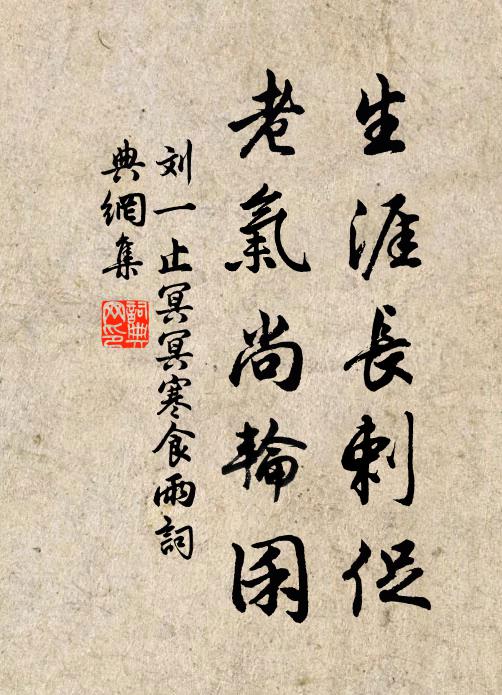 生涯長刺促
老氣尚輪囷
刘一止冥冥寒食雨詞
典網集
詞典网印